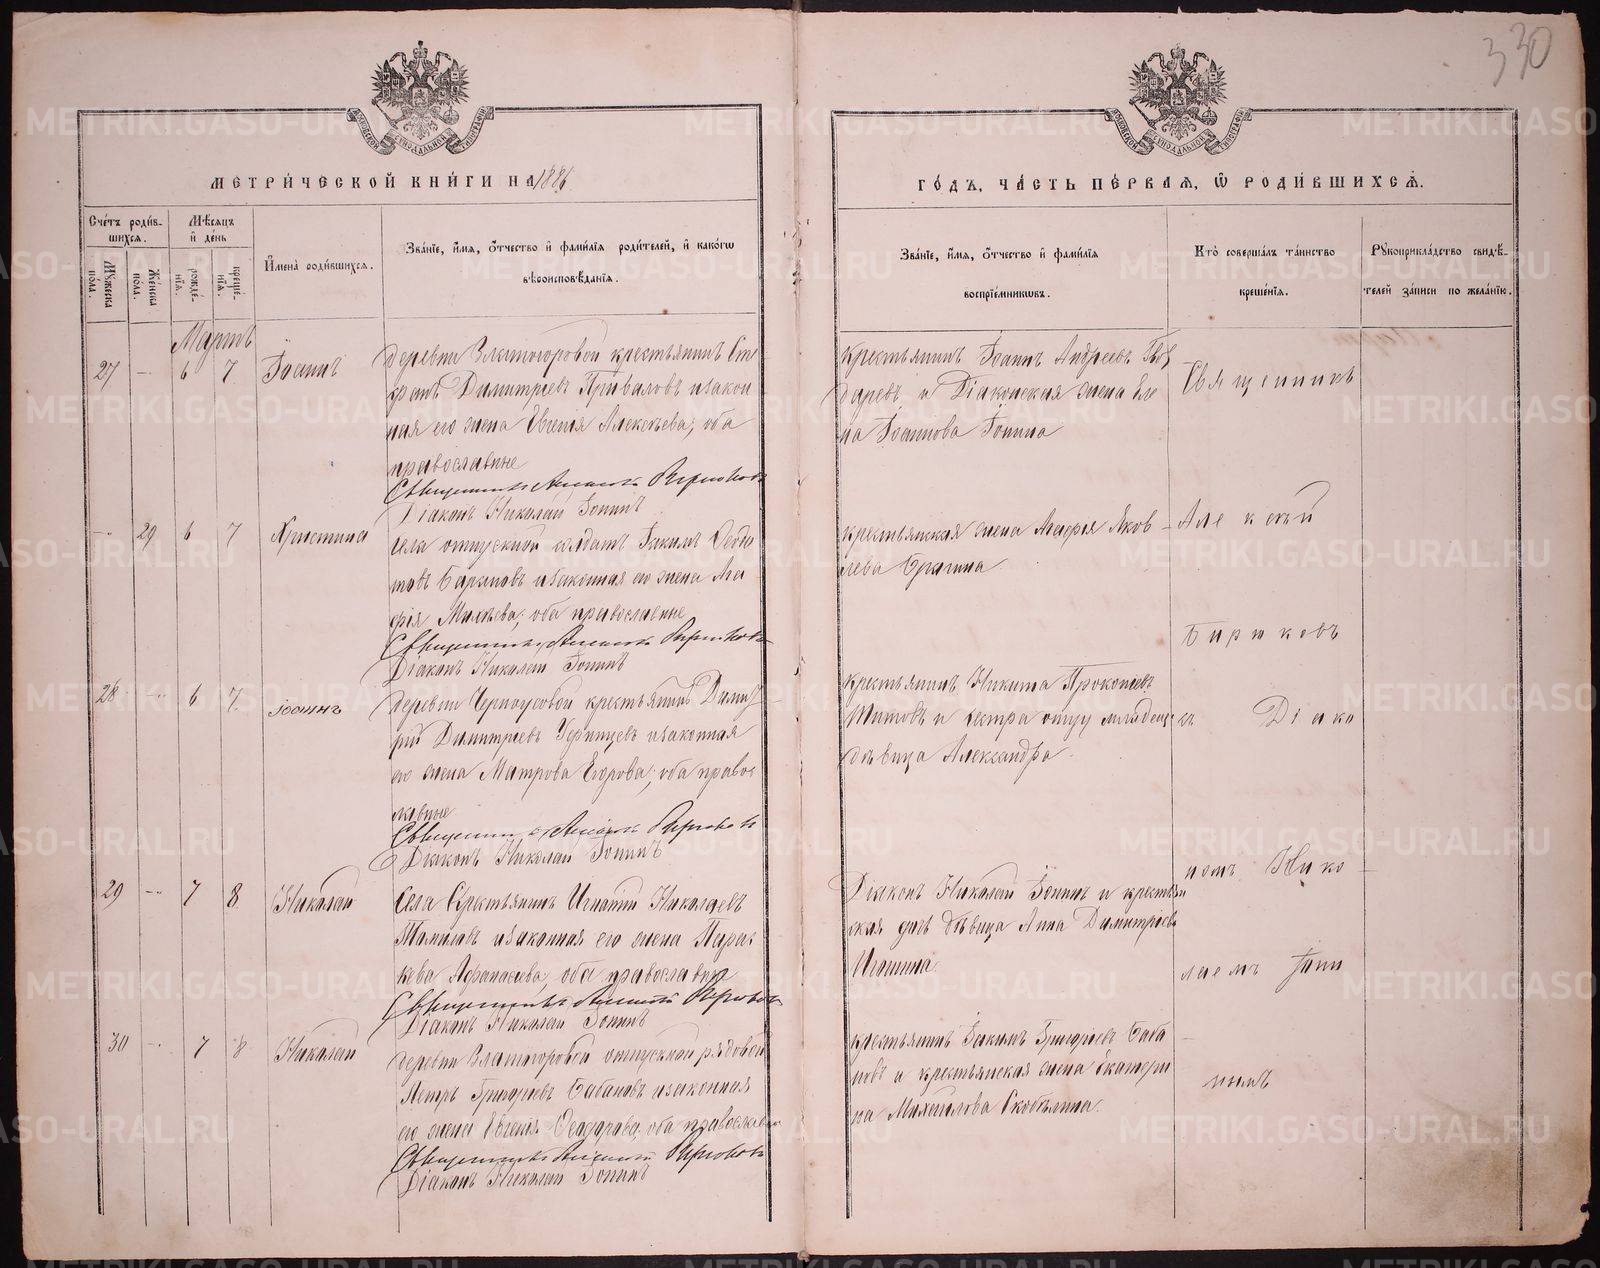 330
МЕТРИ́ЧЕСКОЙ КНИ́ГИ НА 1886
ГО́ДЪ, ЧА́СТЬ ПЕ́РВАЯ, Ѿ РОДИ́ВШИХСѦ.
Сче́тъ роди́в-
шихся.
Мꙋжеска пола.
Же́нска пола.
Мѣ́сяцъ
и҆ де́нь
рожде́-
нїя.
креще́-
нїя.
И҆мена̀ роди́вшихся.
Зва́нїе, и҆́мя, о҆́тчество и҆ фами́лїя роди́телей, и҆ како́гѡ
вѣроисповѣ́данїя.
Зва́нїе, и҆́мя, о҆́тчество и҆ фами́лїя
воспрїе́мникѡвъ.
Кто̀ соверша́лъ та́инство
креще́нїя.
Рꙋкоприкла́дство свидѣ́-
телей за́писи по жела́нїю.
Мартъ
27 — 6 7 Іоаннъ
деревни Златогоровой крестьянинъ
Димитріевъ Приваловъ и закон
ная его жена Евгенія Алексѣева; оба
православные
Священникъ Алексій Бирюковъ
Діаконъ Николай Іонинъ
крестьянинъ Іоаннъ Андреевъ
и Діаконская жена Еле
на Іоаннова Іонина
Священникъ
— 29 6 7 Христина
Села отпускной солдатъ Іакимъ
и законная его жена Ага
фія Михѣева; оба православные
Священникъ Алексій Бирюковъ
Діаконъ Николай Іонинъ
крестьянская жена Агафія Яков
лева Брагина
Алексѣй
Бирюковъ
28 — 6 7 Іоаннъ
деревни Черноусовой крестьянинъ Димит
рій Димитріевъ и законная
его жена Матрона Егорова; оба правос
лавные
Священникъ Алексій Бирюковъ
Діаконъ Николай Іонинъ
крестьянинъ Никита Прокопьевъ
Титовъ и сестра отцу младенца
дѣвица Александра
съ Діако
29 — 7 8 Николай
Села Крестьянинъ Игнатій Николаевъ
Томиловъ и законная его жена Парас
кева Афанасьева, оба православные
Священникъ Алексій Бирюковъ
Діаконъ Николай Іонинъ
Діаконъ Николай Іонинъ и крестьян
ская дочь дѣвица Анна Димитріева
Игошина
номъ Нико
лаемъ Іони
30 — 7 8 Николай
деревни Златогоровой отпускной рядовой
Петръ Григорьевъ Бабановъ и законная
его жена Евгенія Ѳеодорова, оба православные
Священникъ Алексій Бирюковъ
Діаконъ Николай Іонинъ
крестьянинъ Іакимъ Григорьевъ Баба
новъ и крестьянская жена Екатери
на Михайлова Скобѣлина.
нымъ
METRIKI.GASO-URAL.RU